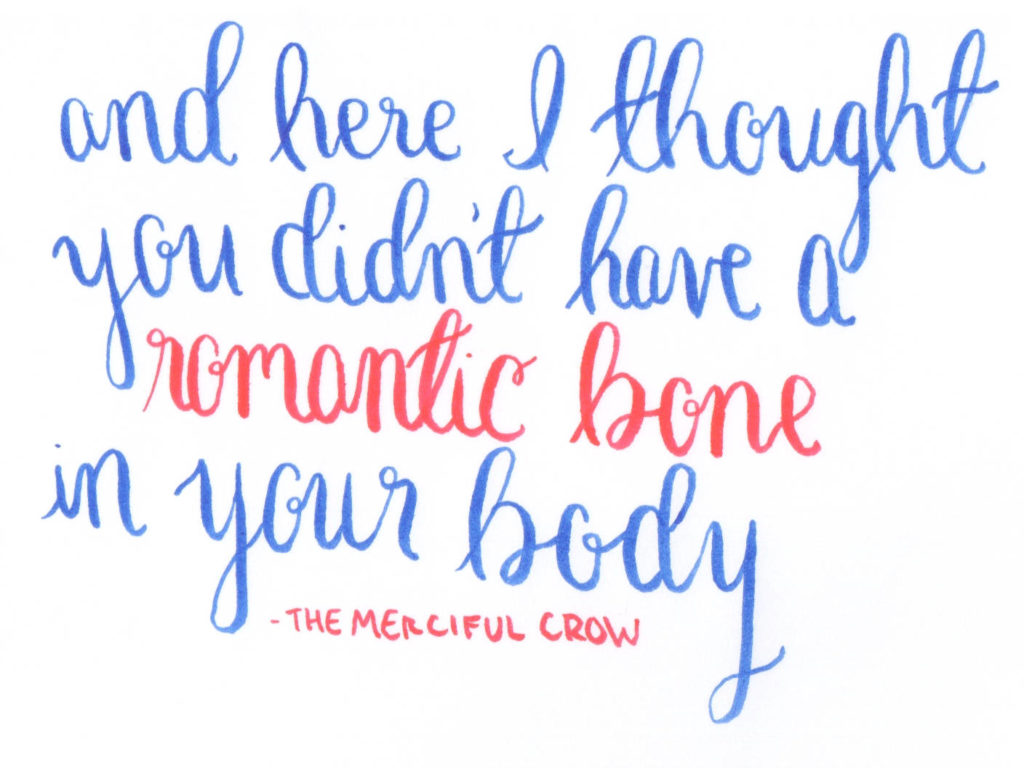 and here I thought
you didn't have a
romantic bone
in your body
-THE MERCIFUL CROW